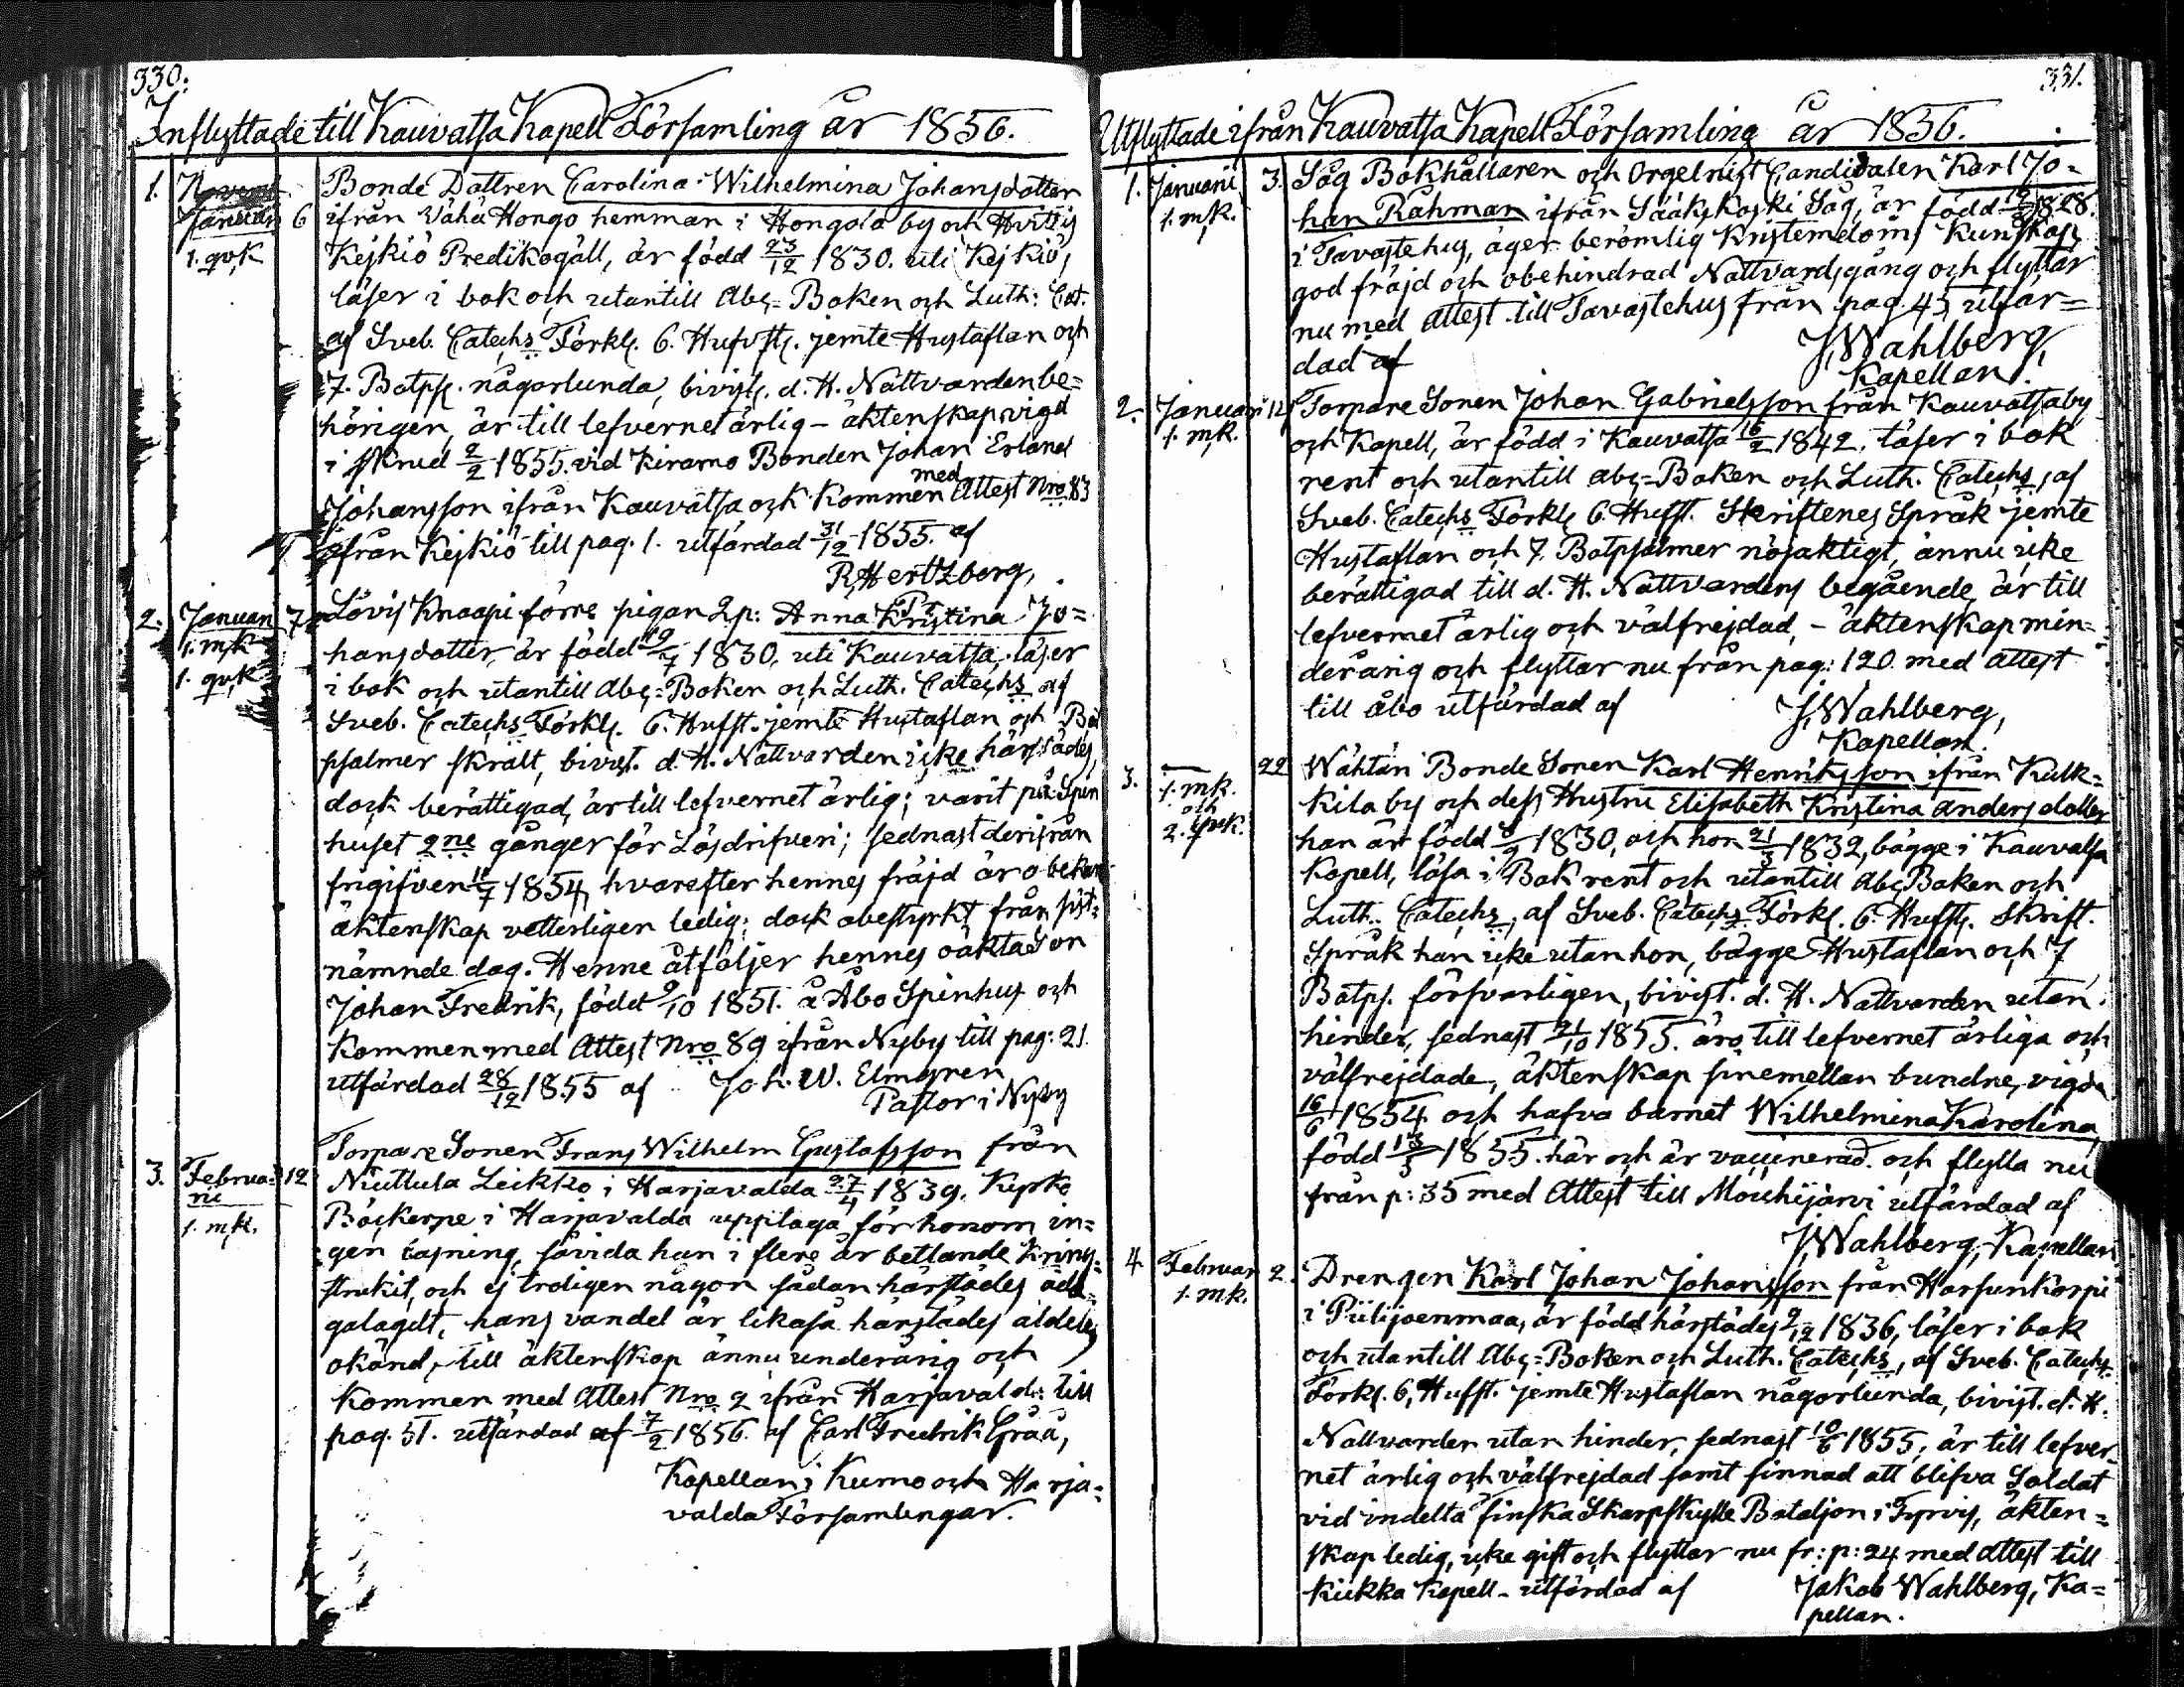 330.
Inflyttade till Kauvatsa Kapell Församling år 1856.
1. Januarii 6 1. qvk
Bonde Dottren Carolina Wilhelmina Johansdotter
ifrån Vähä Hongo hemman i Hongola by och Hvittis
Keikiö Predikogäll, är född 23/12 1830. uti Keikiö,
läser i bok och utantill Abc-Boken och Luth: Cat.
af Sveb. Catechs Förkl. 6. Hufvst. jemte Hustaflan och
7. Botps. någorlunda, bivist. d. H. Nattvarden be-
hörigen, är till lefvernet ärlig - äktenskap vigd
i 2/2 1855. vid Kiramo Bonden Johan Erland
Johansson ifrån Kauvatsa och Kommen med Attest Nro 83
ifrån Keikiö till pag. 1. utfärdad 31/12 1855. af
R. Hertzberg,
2. Januari 7 1. mk 1. qvk
Lövis Knaapi förre pigan 2 p: Anna Kristina Jo-
hansdotter, är född 19/7 1830, uti Kauvatsa, läser
i bok och utantill Abc-Boken och Luth. Catechs af
Sveb. Catechs Förkl. 6. Hufst. jemte Hustaflan och Bot
psalmer skralt, bivist. d. H. Nattvarden icke härstädes,
dock berättigad, är till lefvernet ärlig; varit på Spin
huset 2ne gånger för Lösdrifveri; sednast derifrån
frigifven 11/7 1854, hvarefter hennes fräjd är obekant
äktenskap vetterligen ledig; dock obestyrkt från sist-
nämnde dag. Henne åtföljer hennes oäkta Son
Johan Fredrik, född 9/10 1851. å Åbo Spinhus och
Kommen med Attest Nro 89 ifrån Nyby till pag: 21.
utfärdad 28/12 1855 af Joh. W. Elmgren
Pastor i Nyby
3. Februarii 12 1. mk.
Torpare Sonen Frans Wilhelm Gustafsson från
Niuttula Leikko i Harjavalda 27/4 1839. Kyrko
Böckerne i Harjavalda upptaga för honom in-
gen läsning, såvida han i flere år betlande kring-
strukit, och ej troligen någon sådan härstädes åda-
galagdt, hans vandel är likaså härstädes aldeles
okänd, till äktenskap ännu underårig och
Kommen med Attest Nro 2 ifrån Harjavalda till
pag. 51. utfärdad 7/2 1856. af Carl Fredrik Gråå,
Kapellan i Kumo och Harja-
valda Församlingar.
331.
Utflyttade ifrån Kauvatsa Kapell Församling år 1856.
1. Januarii 3. 1. mk.
Såg Bokhållaren och Orgelnist Candidaten Karl Jo-
han Rahman ifrån Sääkskoski Såg, är född 1828.
i Tavastehus, äger berömlig Kristendoms Kunskap,
god fräjd och obehindrad Nattvardsgång och flyttar
nu med Attest till Tavastehus från pag. 45 utfär-
dad af
J. Wahlberg,
Kapellan.
2. Januari 12 1. mk.
Torpare Sonen Johan Gabrielsson från Kauvatsa by
och Kapell, är född i Kauvatsa 16/2 1842. läser i bok
rent och utantill abc-Boken och Luth. Catechs, af
Sveb. Catechs Förkl 6. Hufst. Skriftenes Språk jemte
Hustaflan och 7. Botpsalmer nöjaktigt, ännu icke
berättigad till d. H. Nattvardens begående, är till
lefvernet ärlig och välfrejdad, - äktenskap min-
derårig och flyttar nu från pag: 120. med Attest
till Åbo utfärdad af
J. Wahlberg,
Kapellan.
3. — 22 1. mk. och 2. qvk.
Wähtäri Bonde Sonen Karl Henriksson ifrån Kulk-
kila by och dess Hustru Elisabeth Kristina Andersdotter
han är född 1830, och hon 21/3 1832, bägge i Kauvatsa
Kapell, läsa i Bok rent och utantill Abc Boken och
Luth. Catechs, af Sveb. Catechs Förkl. 6. Hufst. Skrift.
Språk han icke utan hon, bägge Hustaflan och 7
Botps. försvarligen, bivist. d. H. Nattvarden utan
hinder, sednast 21/10 1855. äro till lefvernet ärliga och
välfrejdade, äktenskap sinemellan bundne, vigde
16/6 1854. och hafva barnet Wilhelmina Karolina
född 13/5 1855. här och är vaccinerad. och flytta nu
från p: 35 med Attest till Mouhijärvi utfärdad af
J. Wahlberg, Kapellan
4. Februari 2. 1. mk.
Drengen Karl Johan Johansson från Harsunkorpi
i Piilijoenmaa, är född härstädes 9/12 1836, läser i bok
och utantill Abc-Boken och Luth. Catechs, af Sveb. Catechs
Förkl. 6, Hufst. jemte Hustaflan någorlunda, bivist. d. H.
Nattvarden utan hinder, sednast 10/6 1855, är till lefver
net ärlig och välfrejdad samt sinnad att blifva Soldat
vid indelta finska Skarpskytte Bataljon i Tyrvis, äkten-
skap ledig, icke gift och flyttar nu fr: p: 24 med attest till
Kiikka Kapell - utfärdad af Jakob Wahlberg, Ka-
pellan.